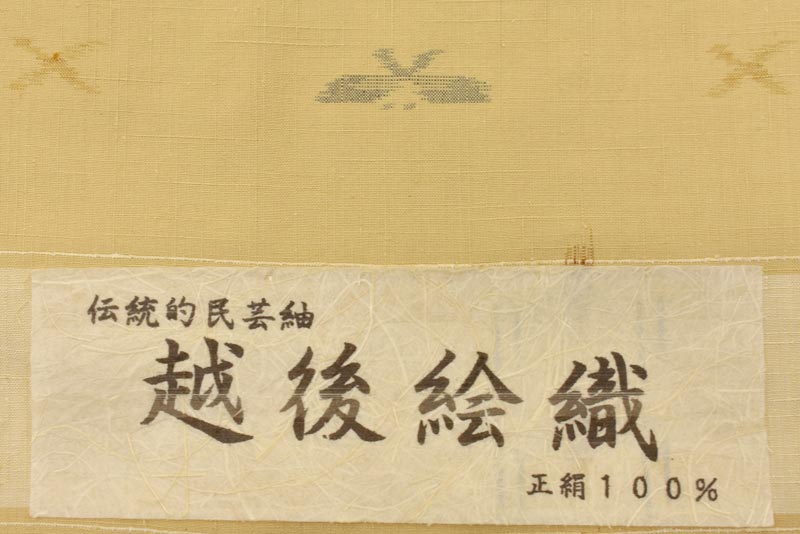 伝統的民芸紬
越後絵織
正絹１００％